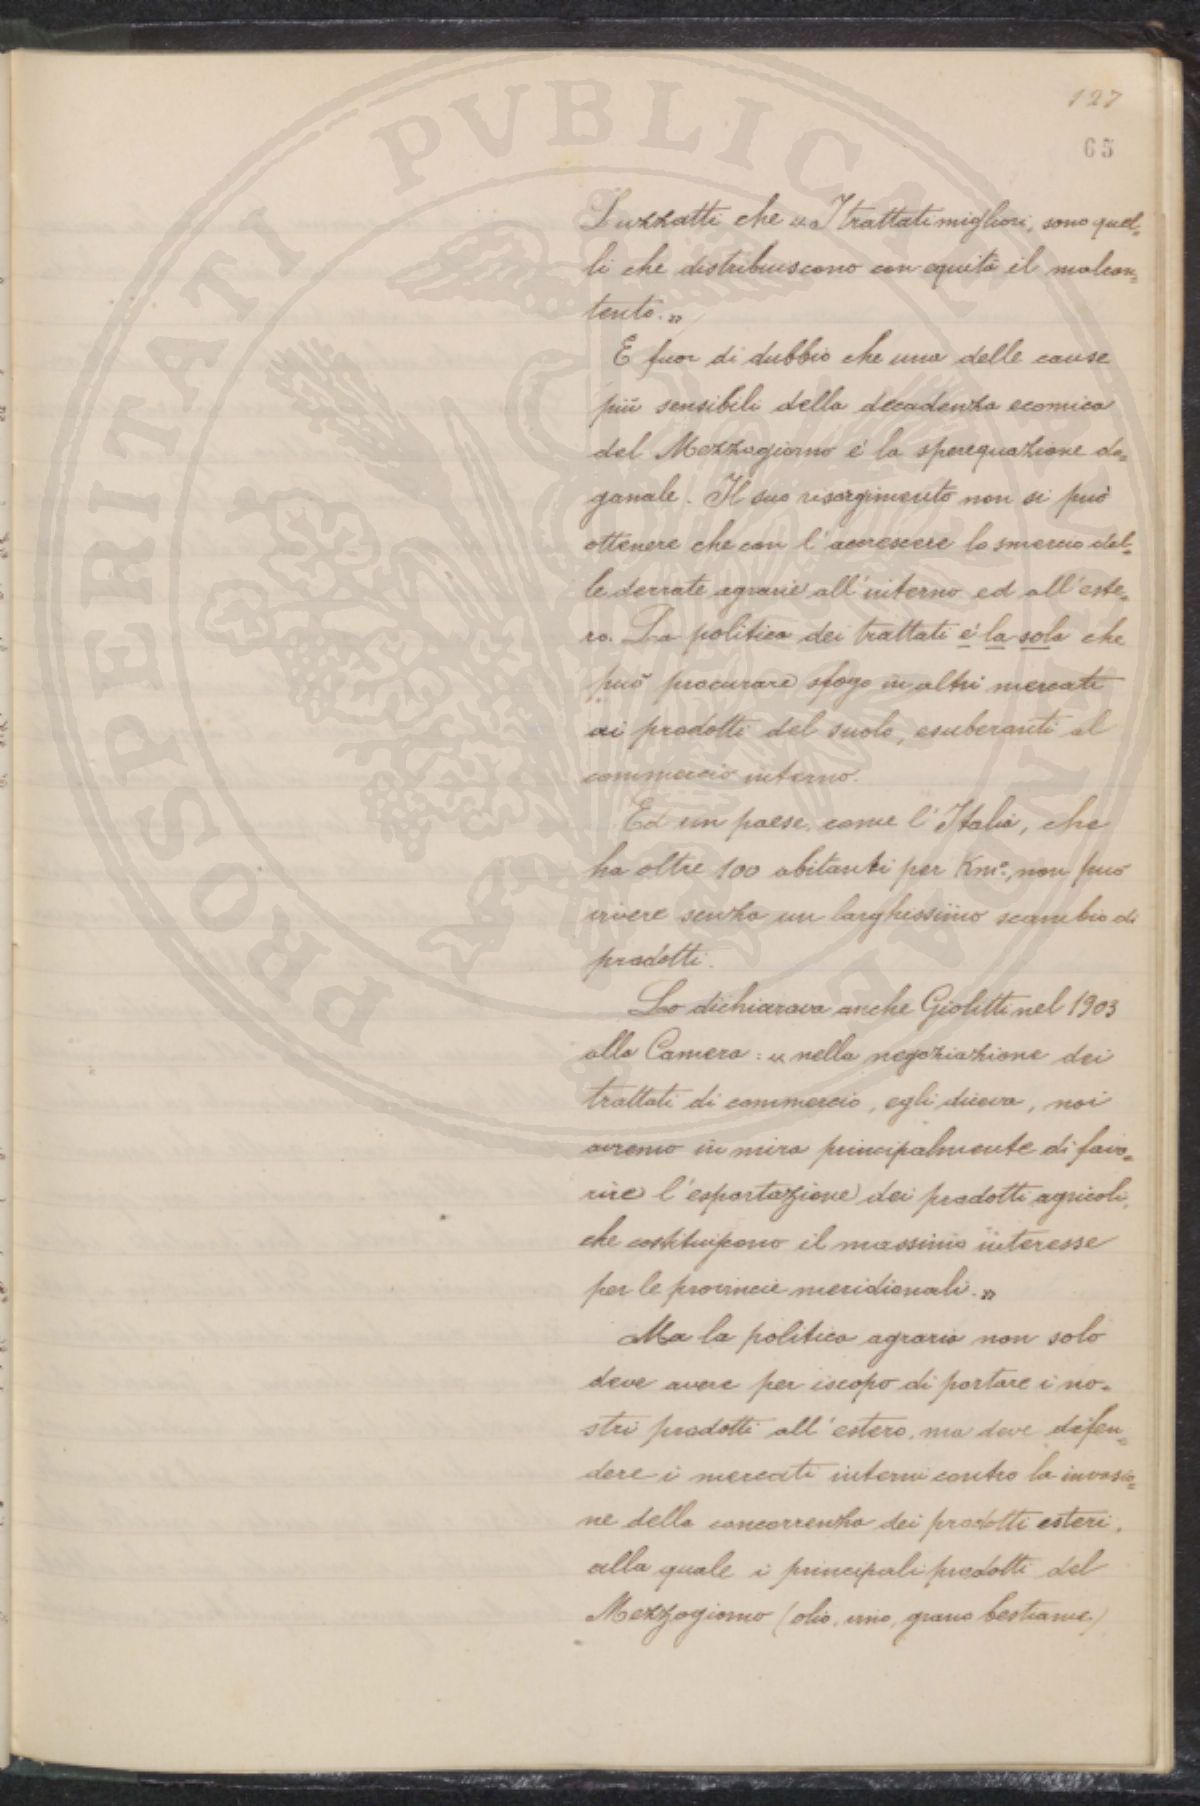 127
65
Luzzatti che « I trattati migliori, sono quel=
li che distribuiscono con equità il malcon=
tento. »
E fuor di dubbio che una delle cause
più sensibili della decadenza ecomica
del Mezzogiorno é la sperequazione do=
ganale. Il suo risorgimento non si può
ottenere che con l'accrescere lo smercio del=
le derrate agrarie all'interno ed all'este=
ro. La politica dei trattati é la sola che
può procurare sfogo in altri mercati
ai prodotti del suolo, esuberanti al
commercio interno.
Ed un paese, come l'Italia, che
ha oltre 100 abitanti per Kmº, non può
vivere senza un larghissimo scambio di
prodotti.
Lo dichiarava anche Giolitti nel 1903
alla Camera: « nella negoziazione dei
trattati di commercio, egli diceva, noi
avremo in mira principalmente di favo=
rire l'esportazione dei prodotti agricoli,
che costituiscono il massimo interesse
per le provincie meridionali. »
Ma la politica agraria non solo
deve avere per iscopo di portare i no=
stri prodotti all'estero, ma deve difen=
dere i mercati interni contro la invasio=
ne della concorrenza dei prodotti esteri,
alla quale i principali prodotti del
Mezzogiorno (olio, vino, grano bestiame)
PROSPERITATI PVBLICAE AVGENDAE